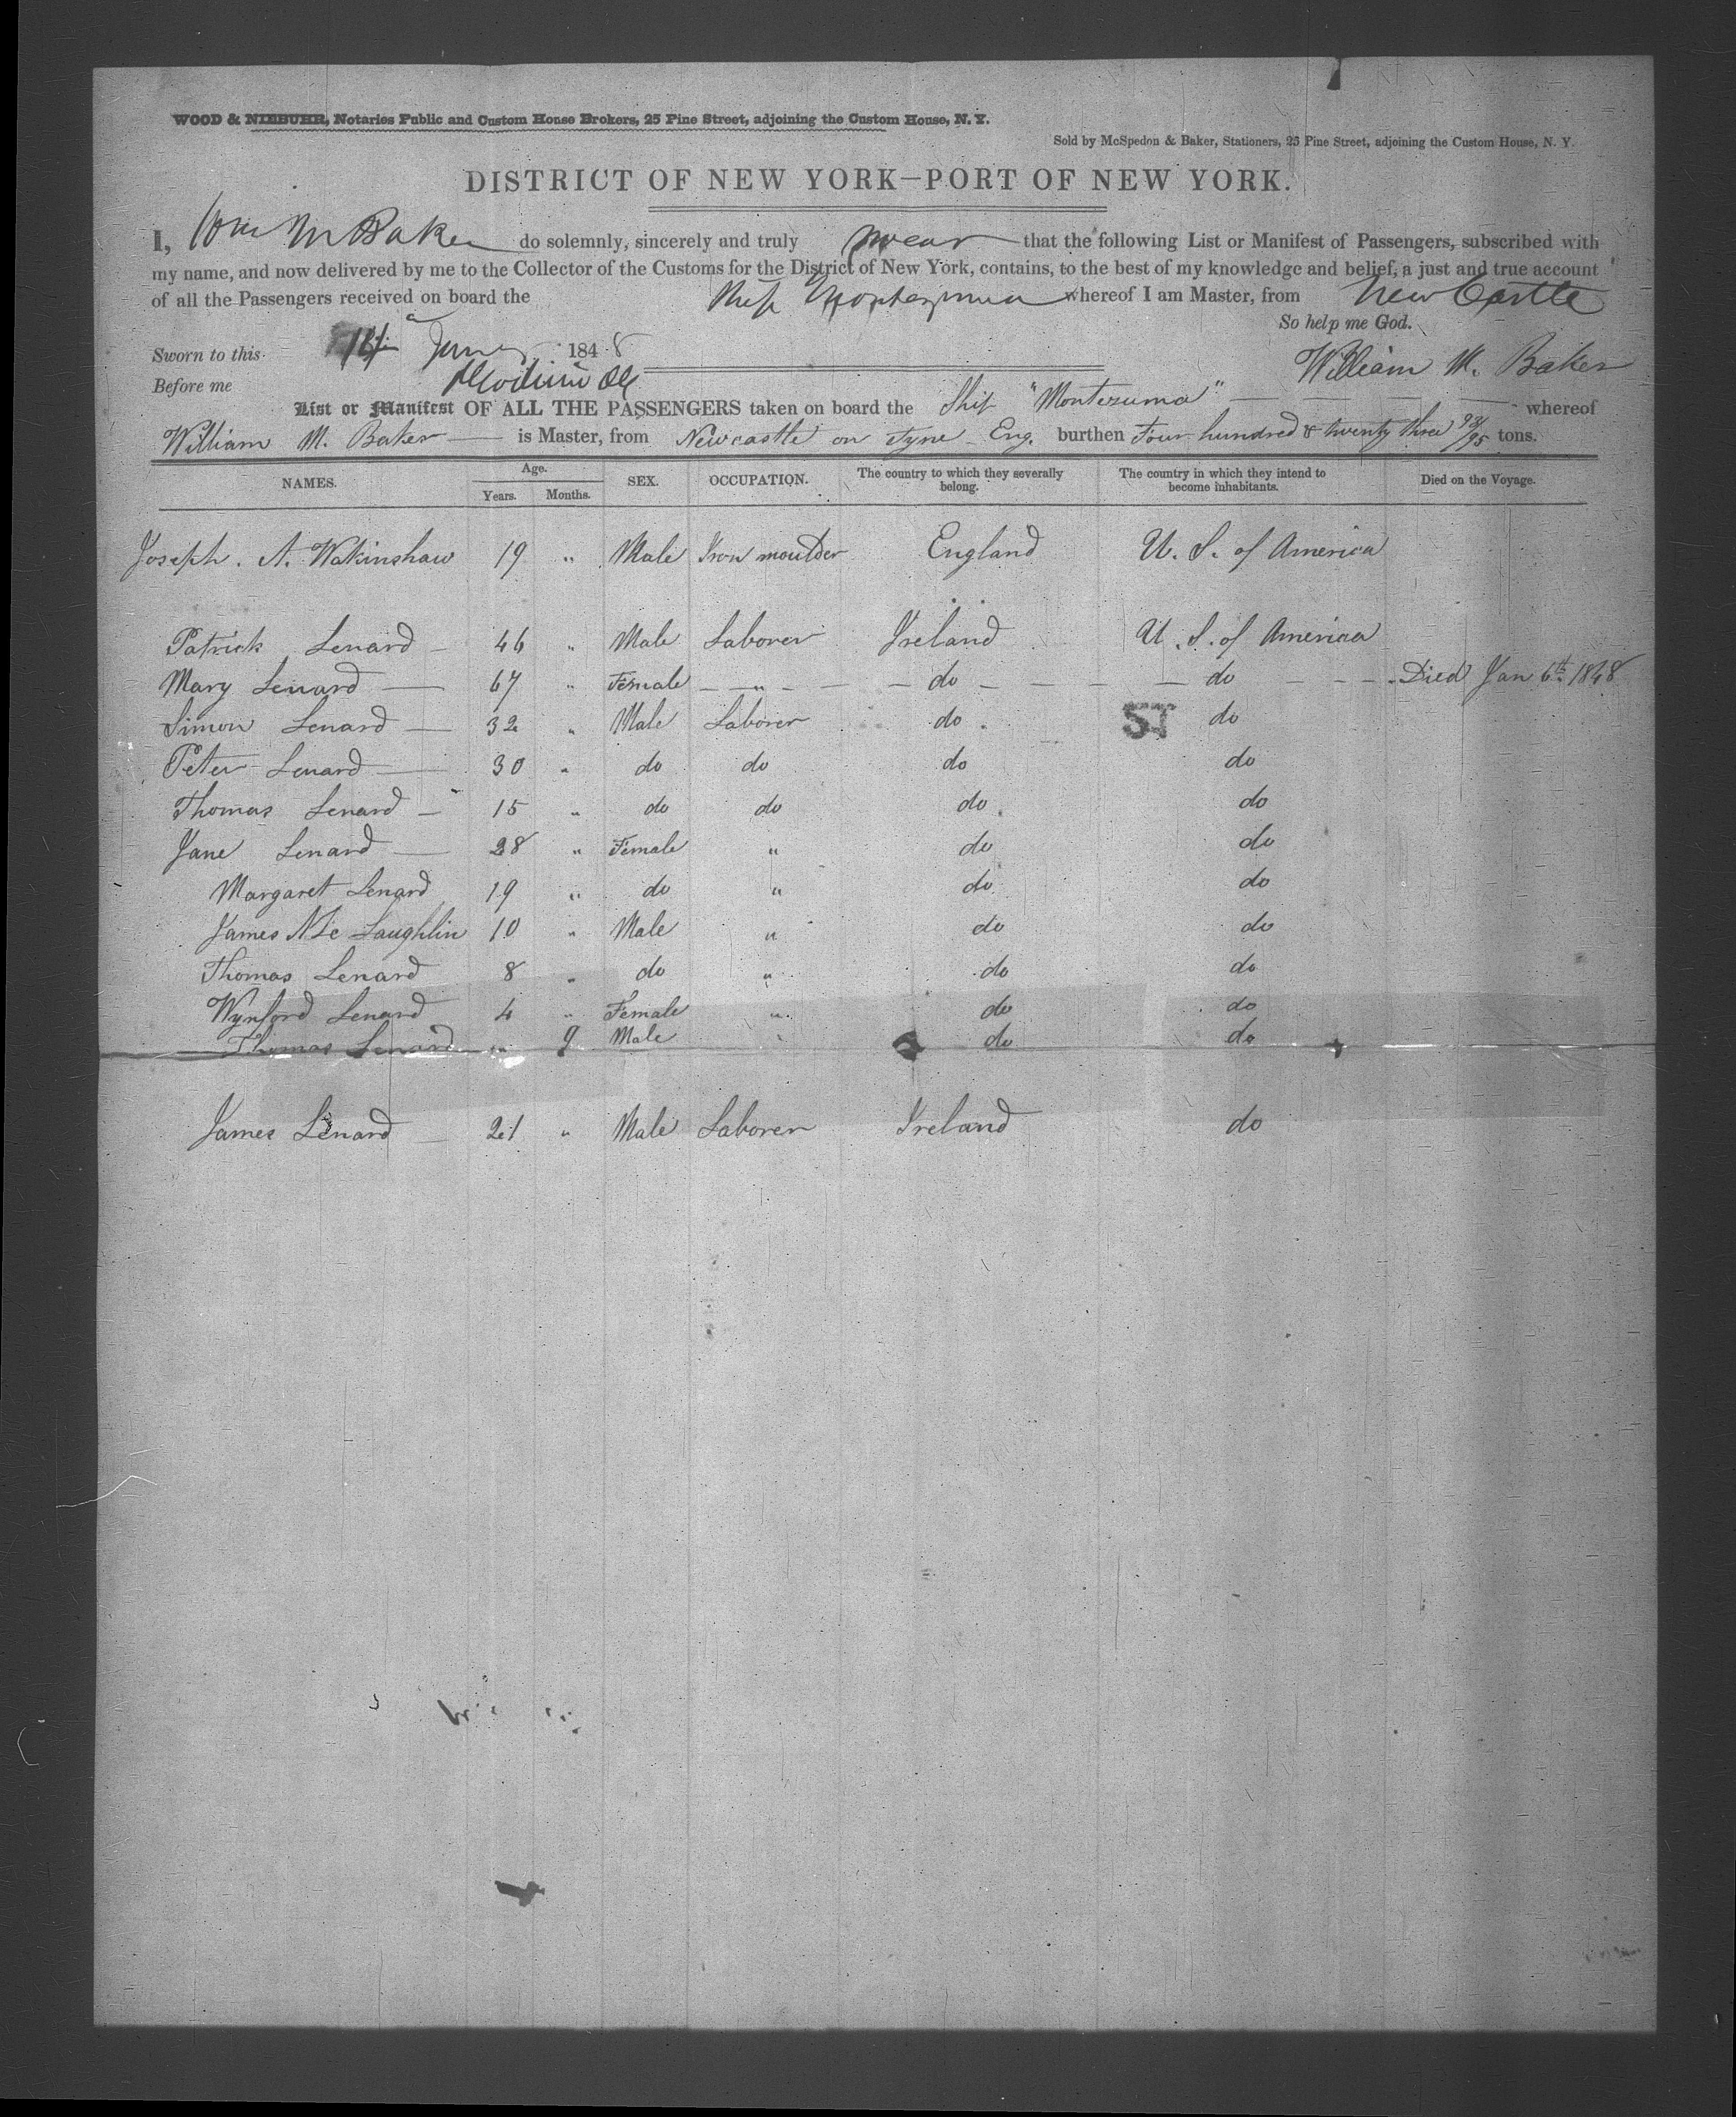 WOOD & NIEBUHR, Notaries Public and Custom House Brokers, 25 Pine Street, adjoining the Custom House, N. Y.
Sold by McSpedon & Baker, Stationers, 25 Pine Street, adjoining the Custom House, N. Y.
DISTRICT OF NEW YORK—PORT OF NEW YORK.
I, Wm M Baker do solemnly, sincerely and truly swear that the following List or Manifest of Passengers, subscribed with
my name, and now delivered by me to the Collector of the Customs for the District of New York, contains, to the best of my knowledge and belief, a just and true account
of all the Passengers received on board the Ship Montezuma whereof I am Master, from New Castle
So help me God.
Sworn to this 1848
William M. Baker
Before me
List or Manifest OF ALL THE PASSENGERS taken on board the Ship "Montezuma" whereof
William M. Baker is Master, from Newcastle on Tyne Eng. burthen Four hundred & twenty three 93/95 tons.
NAMES. Age. Years. Months. SEX. OCCUPATION. The country to which they severally belong. The country in which they intend to become inhabitants. Died on the Voyage.
Joseph. A. Watkinshaw 19 " Male Iron moulder England U. S. of America
Patrick Lenard 46 " Male Laborer Ireland U. S. of America
Mary Lenard 67 " Female " do do Died Jan 6th 1848
Simon Lenard 32 " Male Laborer do ST do
Peter Lenard 30 " do do do do
Thomas Lenard 15 " do do do do
Jane Lenard 28 " Female " do do
Margaret Lenard 19 " do " do do
James Mc Laughlin 10 " Male " do do
Thomas Lenard 8 " do " do do
Wynford Lenard 4 " Female " do do
Thomas Lenard " 9 Male " do do
James Lenard 21 " Male Laborer Ireland do